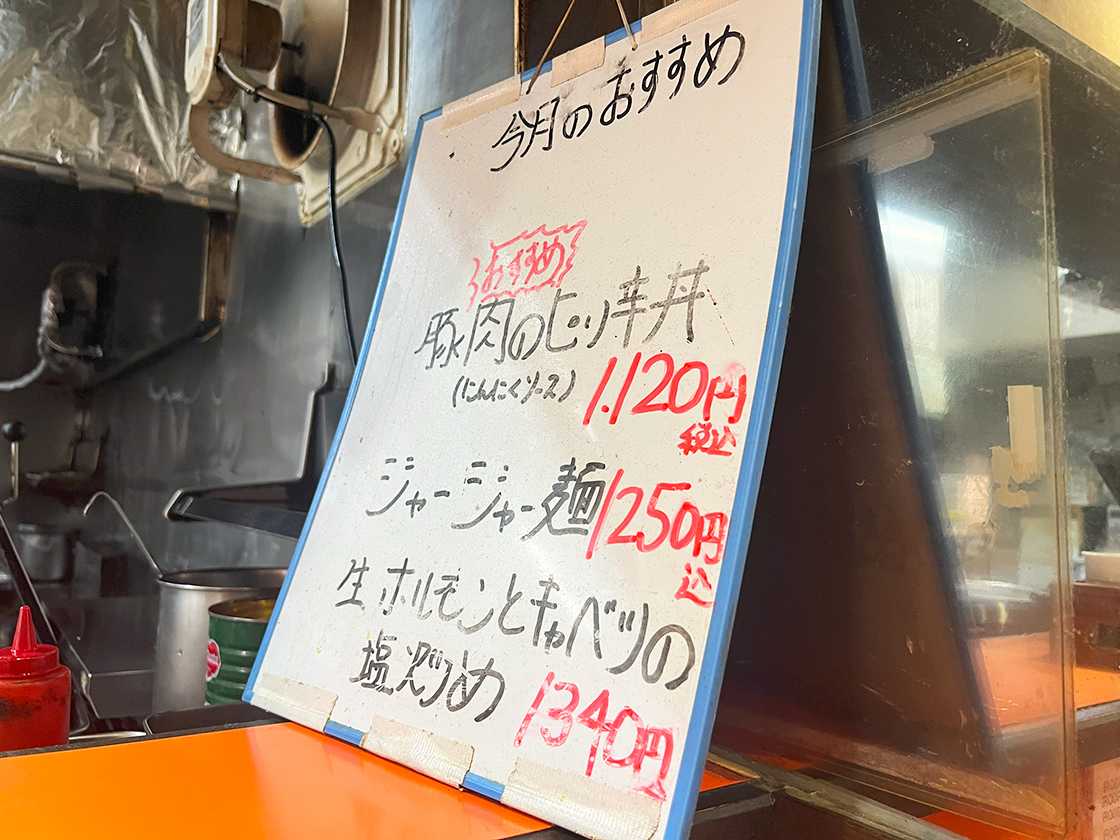 今月のおすすめ
おすすめ
豚肉のピリ辛丼
(にんにくソース) 1.120円
税込
ジャージャー麺 1250円
込
生ホルモンとキャベツの
塩炒め 1340円